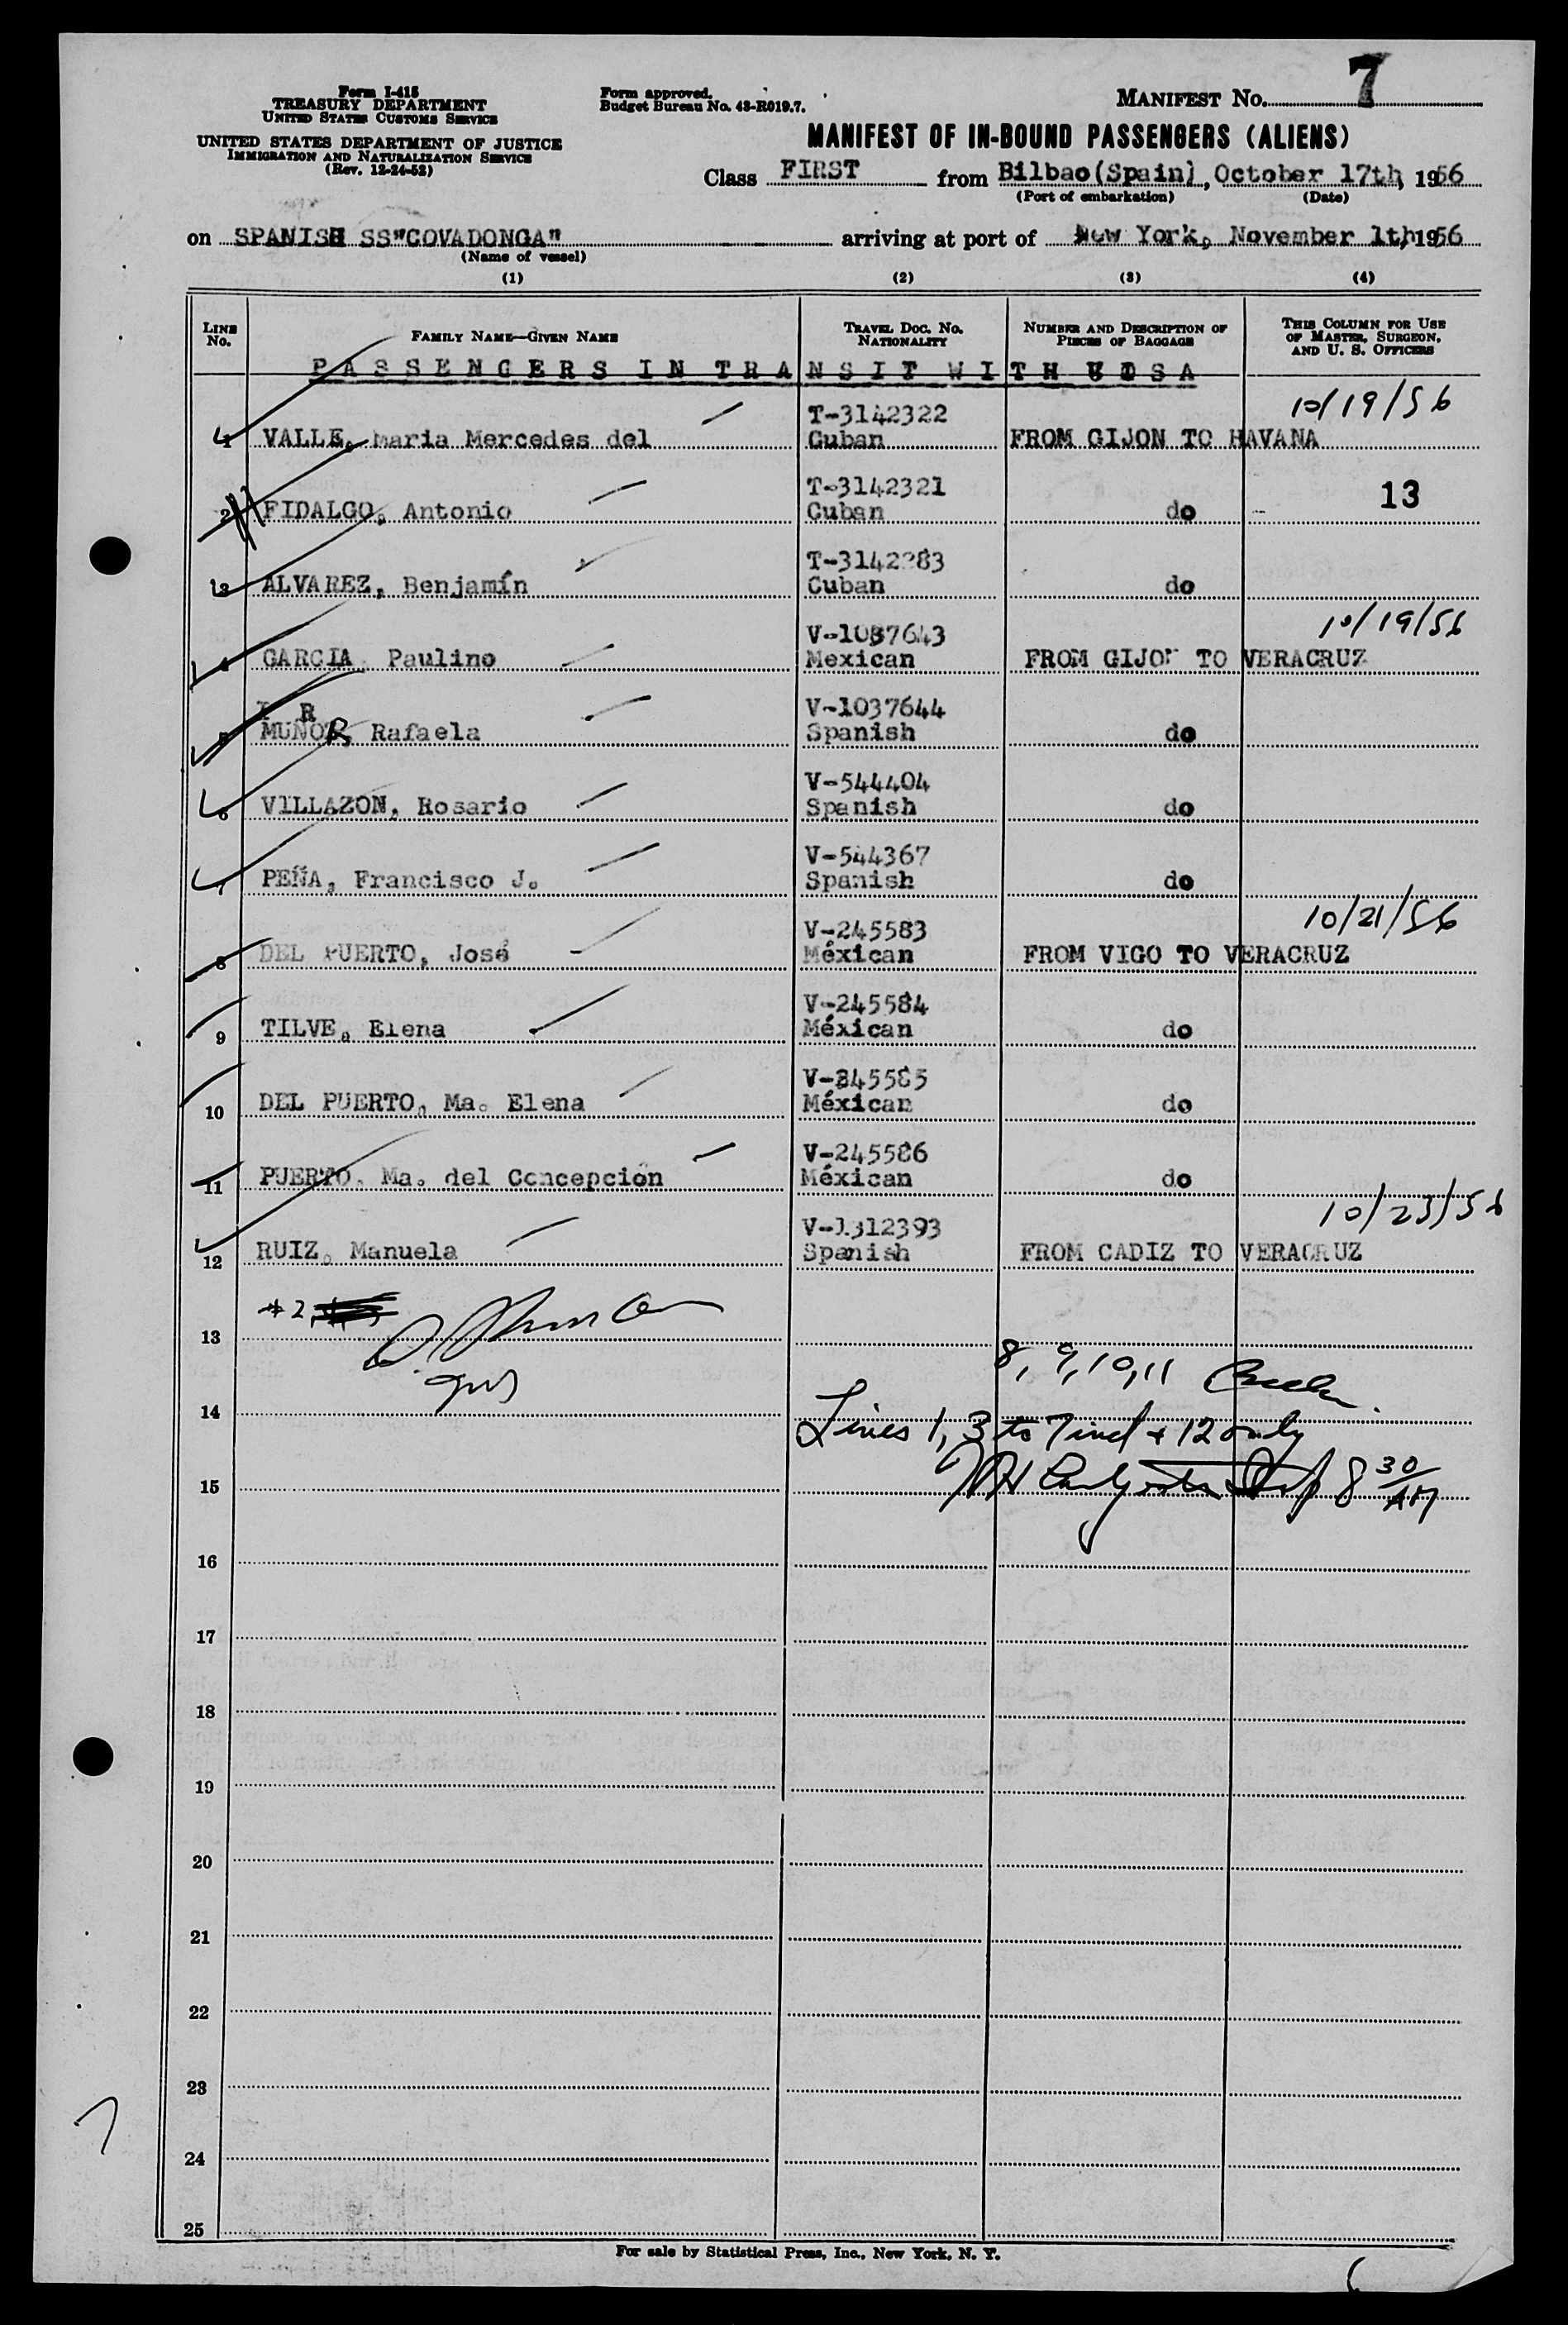 Form I-415
TREASURY DEPARTMENT
UNITED STATES CUSTOMS SERVICE
UNITED STATES DEPARTMENT OF JUSTICE
IMMIGRATION AND NATURALIZATION SERVICE
(Rev. 12-24-52)
Form approved.
Budget Bureau No. 43-R019.7.
MANIFEST NO. 7
MANIFEST OF IN-BOUND PASSENGERS (ALIENS)
Class FIRST from Bilbao(Spain), October 17th, 1956
(Port of embarkation) (Date)
on SPANISH SS"COVADONGA" arriving at port of New York, November 1th, 1956
(Name of vessel)
(1) (2) (3) (4)
LINE NO. FAMILY NAME—GIVEN NAME TRAVEL DOC. NO. NATIONALITY NUMBER AND DESCRIPTION OF PIECES OF BAGGAGE THIS COLUMN FOR USE OF MASTER, SURGEON, AND U. S. OFFICERS
PASSENGERS IN TRANSIT WITH UDSA
T-3142322 10/19/56
1 VALLE, Maria Mercedes del Cuban FROM GIJON TO HAVANA
T-3142321 13
2 FIDALGO, Antonio Cuban do
T-3142283
3 ALVAREZ, Benjamín Cuban do
V-1037643 10/19/56
4 GARCIA, Paulino Mexican FROM GIJON TO VERACRUZ
R V-1037644
5 MUÑOR, Rafaela Spanish do
V-544404
6 VILLAZON, Rosario Spanish do
V-544367
7 PEÑA, Francisco J. Spanish do
V-245583 10/21/56
8 DEL PUERTO, José Méxican FROM VIGO TO VERACRUZ
V-245584
9 TILVE, Elena Méxican do
V-245585
10 DEL PUERTO, Ma. Elena Méxican do
V-245586
11 PUERTO, Ma. del Concepción Méxican do
V-1312393 10/23/56
12 RUIZ, Manuela Spanish FROM CADIZ TO VERACRUZ
#2
13
8, 9, 10, 11
14
Lines 1, 3 to 7 incl + 12 only
15
8 30/AM
16
17
18
19
20
21
22
23
24
25
7
For sale by Statistical Press, Inc., New York, N. Y.